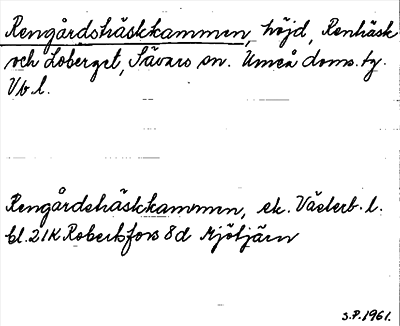 Rengårdshäskkammen, höjd, Renhäsk
och Loberget, Sävars sn. Umeå doms. tg.
Vb.l.
Rengårdshäskkammen, ek. Västerb. l.
bl. 21K Robertsfors 8d Mjötjärn
S.P. 1961.